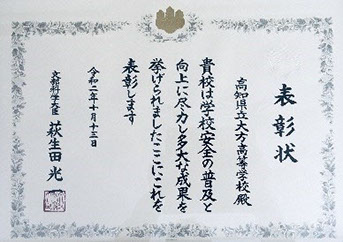 表彰状
高知県立大方高等学校殿
貴校は学校安全の普及と
向上に尽力し多大な成果を
挙げられましたここにこれを
表彰します
令和二年十月十三日
文部科学大臣 萩生田光一